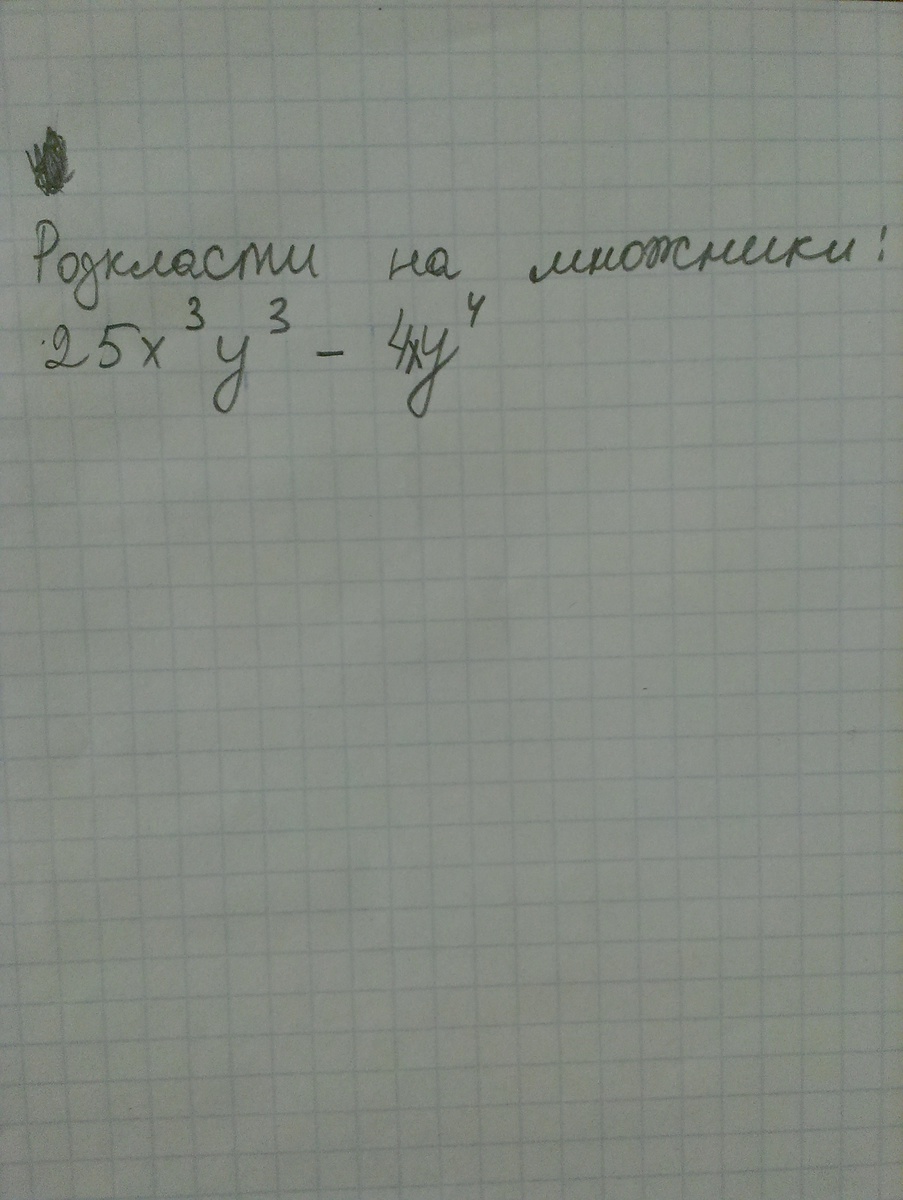 Родкласти на множники:
25x³y³ - 4xy⁴